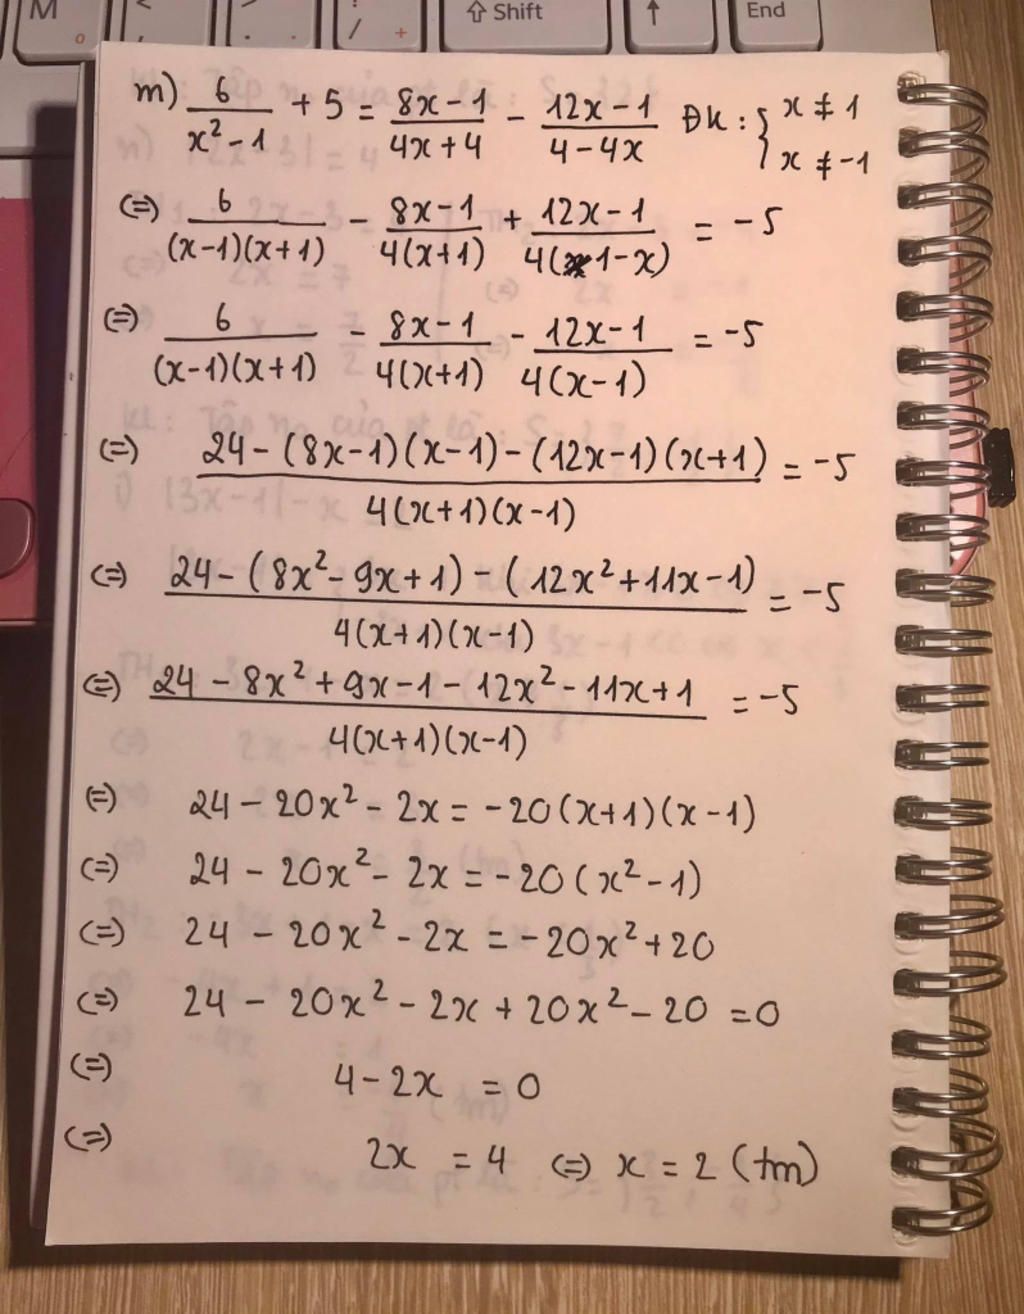 M
⇧ Shift
↑
End
m) 6/(x² - 1) + 5 = (8x - 1)/(4x + 4) - (12x - 1)/(4 - 4x) ĐK: { x ≠ 1
x ≠ -1
(=) 6/((x-1)(x+1)) - (8x - 1)/(4(x+1)) + (12x - 1)/(4(1-x)) = -5
(=) 6/((x-1)(x+1)) - (8x - 1)/(4(x+1)) - (12x - 1)/(4(x-1)) = -5
(=) (24 - (8x-1)(x-1) - (12x-1)(x+1))/(4(x+1)(x-1)) = -5
(=) (24 - (8x² - 9x + 1) - (12x² + 11x - 1))/(4(x+1)(x-1)) = -5
(=) (24 - 8x² + 9x - 1 - 12x² - 11x + 1)/(4(x+1)(x-1)) = -5
(=) 24 - 20x² - 2x = -20(x+1)(x-1)
(=) 24 - 20x² - 2x = -20(x² - 1)
(=) 24 - 20x² - 2x = -20x² + 20
(=) 24 - 20x² - 2x + 20x² - 20 = 0
(=) 4 - 2x = 0
(=) 2x = 4 (=) x = 2 (tm)